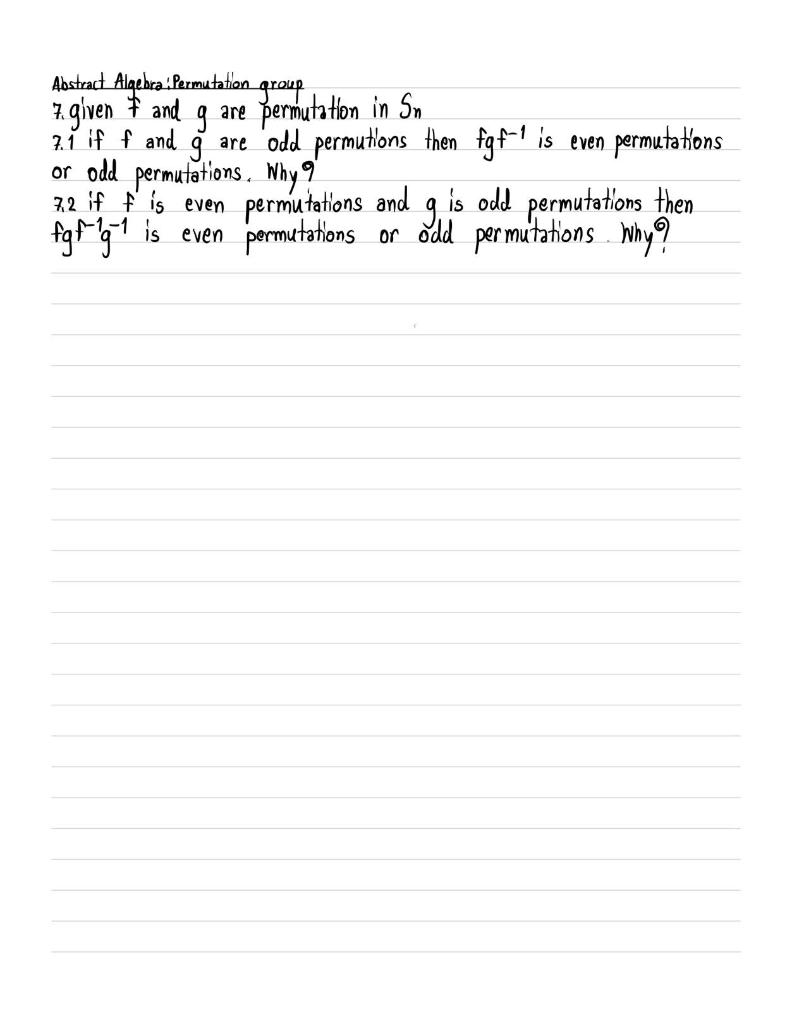 Abstract Algebra: Permutation group
7. given f and g are permutation in Sn
7.1 if f and g are odd permutions then fgf⁻¹ is even permutations
or odd permutations. Why?
7.2 if f is even permutations and g is odd permutations then
fgf⁻¹g⁻¹ is even permutations or odd permutations. Why?